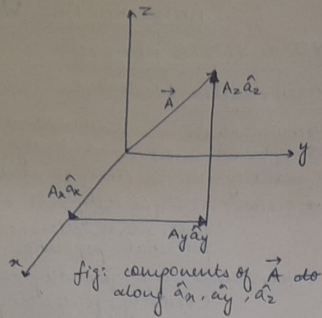 z
A_z â_z
A⃗
y
A_x â_x
A_y â_y
x
fig: components of A⃗
along â_x, â_y, â_z